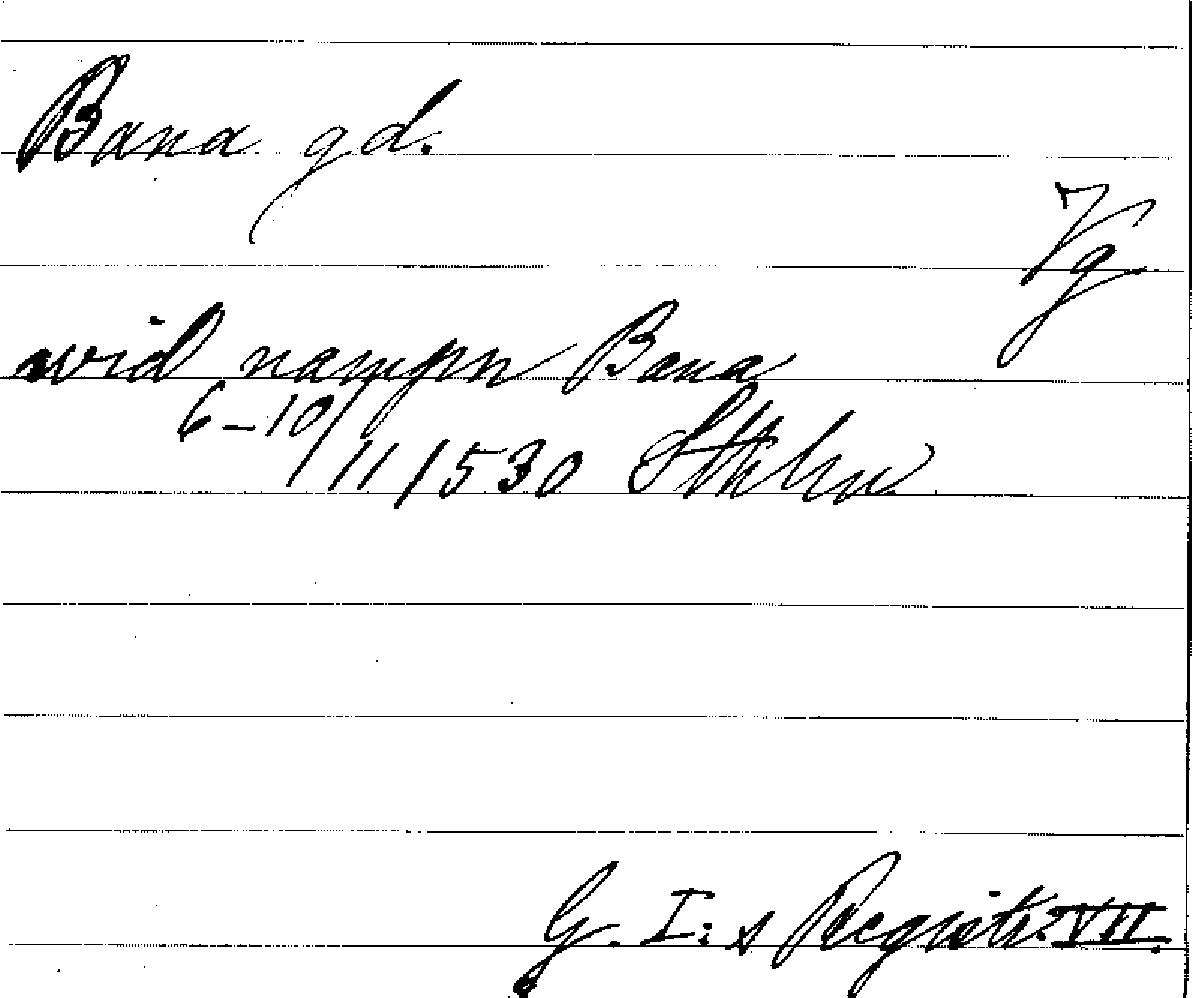 Bana gd.
Vg
wid nampn Bana
6-10/11 1530 Sthlm
G. I:s Registr. VII.